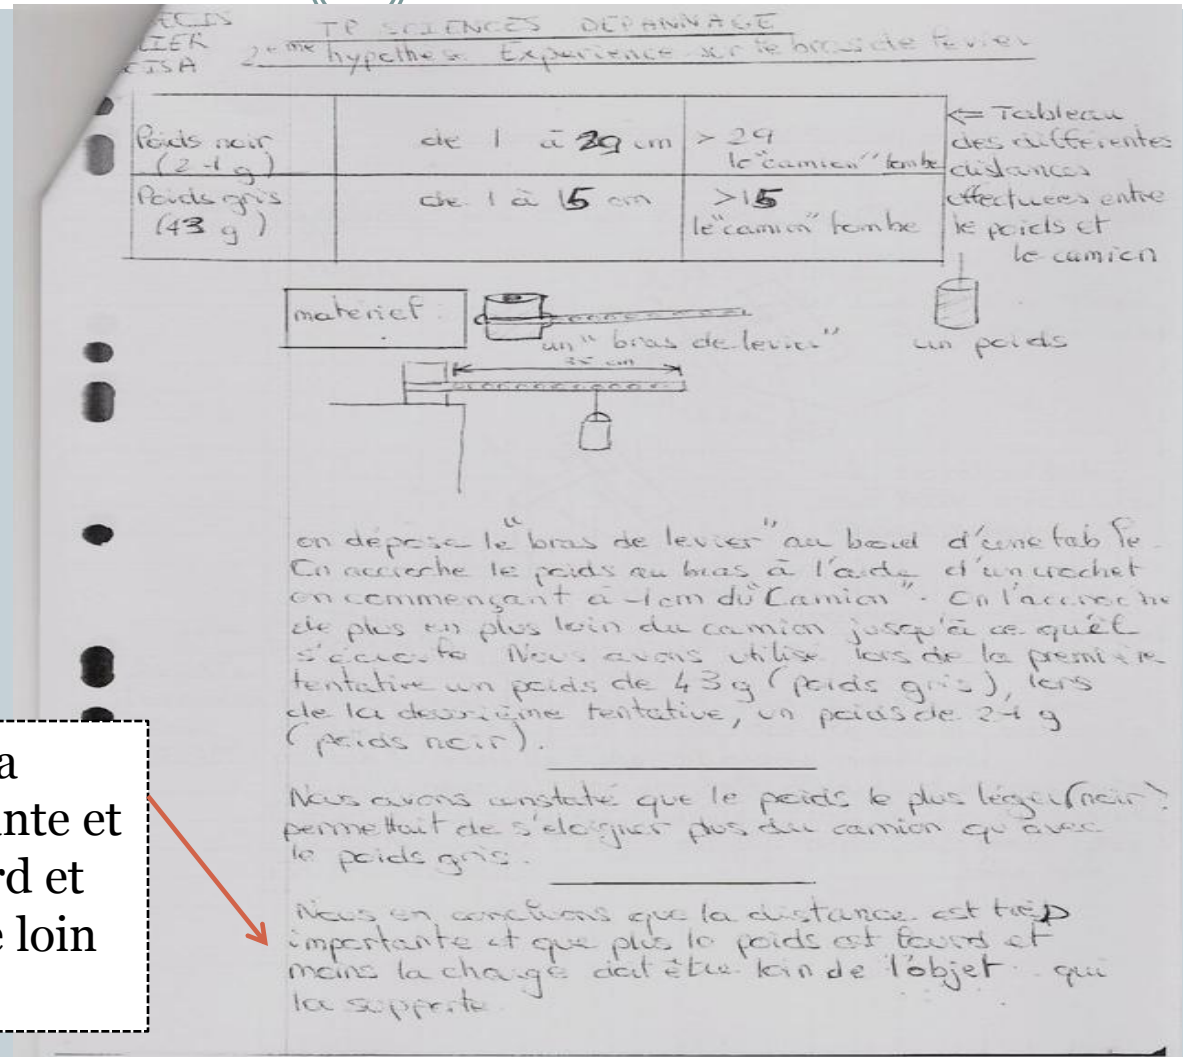 TP SCIENCES DEPANNAGE
2eme hypothèse Expérience sur le bras de levier
Poids noir
(21 g)
de 1 à 29 cm
> 29
le "camion" tombe
Poids gris
(43 g)
de 1 à 15 cm
>15
le "camion" tombe
<= Tableau
des différentes
distances
effectuées entre
le poids et
le camion
matériel :
un "bras de levier"
un poids
35 cm
on dépose le "bras de levier" au bord d'une table
On accroche le poids au bras à l'aide d'un crochet
en commençant à 1cm du "Camion". On l'accroche
de plus en plus loin du camion jusqu'à ce qu'il
Nous avons utilisé lors de la première
tentative un poids de 43g (poids gris), lors
de la deuxième tentative, un poids de 21 g
(poids noir).
Nous avons constaté que le poids le plus léger (noir)
permettait de s'éloigner plus du camion qu'avec
le poids gris.
Nous en concluons que la distance est très
importante et que plus le poids est lourd et
moins la charge doit être loin de l'objet qui
la supporte.
a
nte et
rd et
e loin